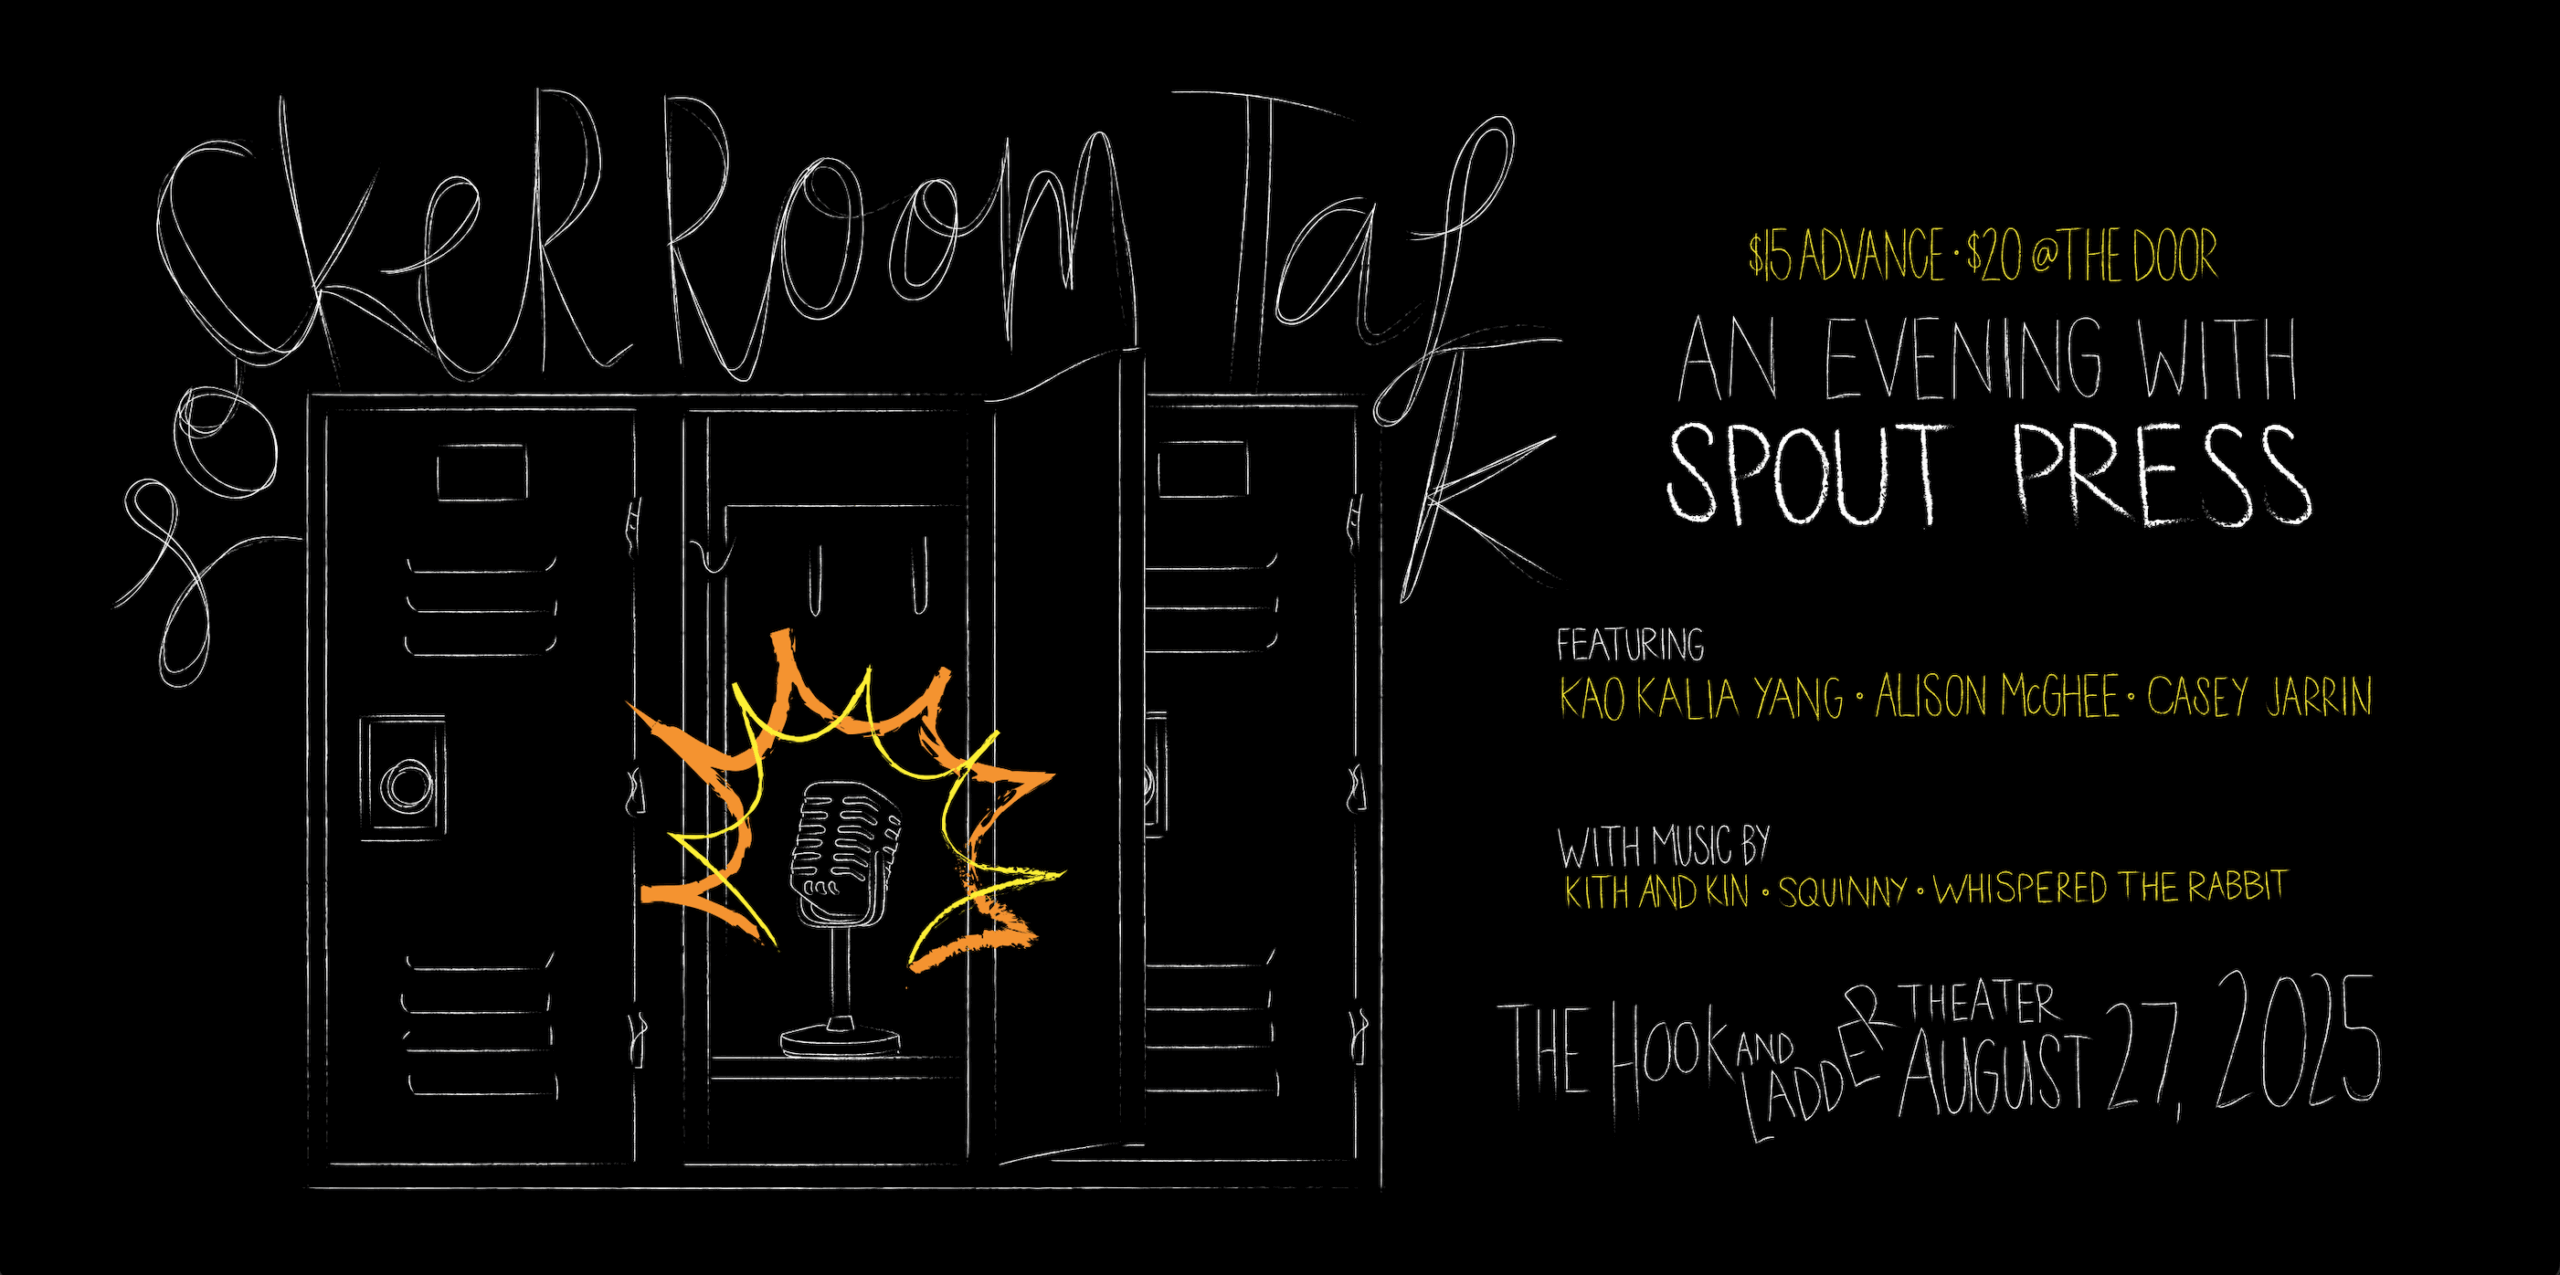 LockeR Room Talk
$15 ADVANCE · $20 @ THE DOOR
AN EVENING WITH
SPOUT PRESS
FEATURING
KAO KALIA YANG · ALISON McGHEE · CASEY JARRIN
WITH MUSIC BY
KITH AND KIN · SQUINNY · WHISPERED THE RABBIT
THE HOOK AND LADDER THEATER
AUGUST 27, 2025